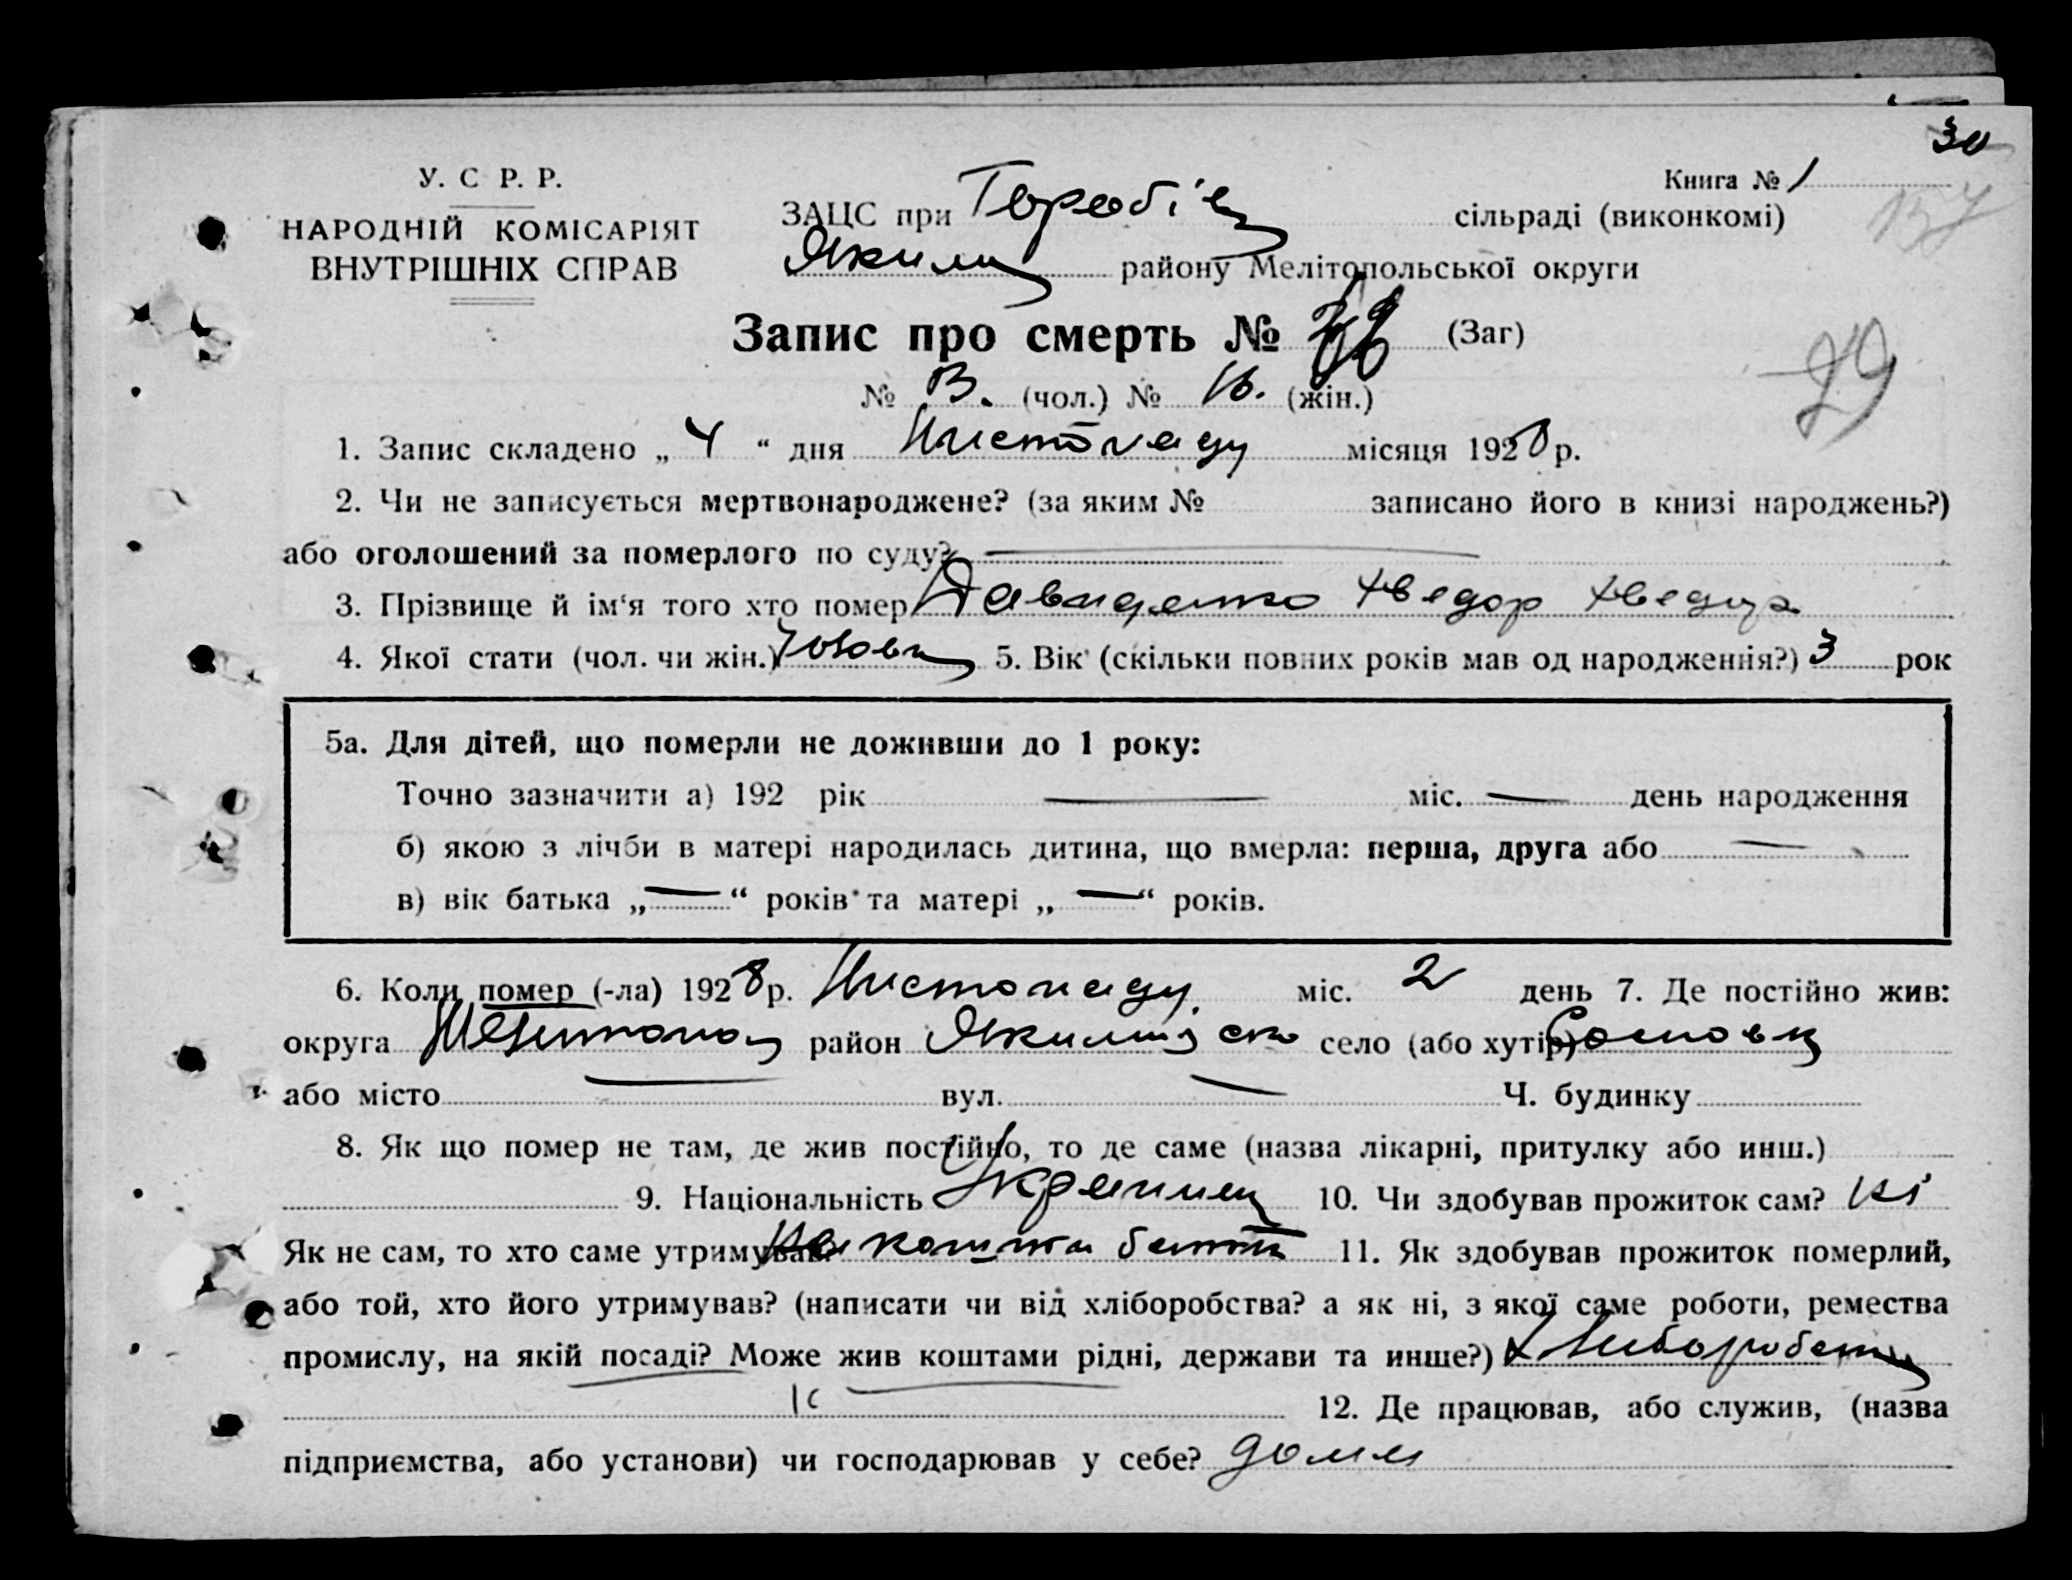 30
У. С Р. Р.
НАРОДНІЙ КОМІСАРІЯТ
ВНУТРІШНІХ СПРАВ
Книга № 1
ЗАЦС при сільраді (виконкомі)
Яким району Мелітопольської округи
Запис про смерть № (Заг)
№ 13. (чол.) № 16. (жін.)
29
1. Запис складено „ 4 “ дня Листопаду місяця 1928 р.
2. Чи не записується мертвонароджене? (за яким № записано його в книзі народжень?)
або оголошений за померлого по суду? —
3. Прізвище й ім‘я того хто помер Давиденко Хведор Хведор
4. Якої стати (чол. чи жін.) Чолов 5. Вік (скільки повних років мав од народження?) 3 рок
5а. Для дітей, що померли не доживши до 1 року:
Точно зазначити а) 192 рік — міс. — день народження
б) якою з лічби в матері народилась дитина, що вмерла: перша, друга або —
в) вік батька „ — “ років та матері „ — “ років.
6. Коли помер (-ла) 1928 р. Листопаду міс. 2 день 7. Де постійно жив:
округа Мелітопол район Якимівско село (або хутір) Сосновк
або місто — вул. — Ч. будинку
8. Як що помер не там, де жив постійно, то де саме (назва лікарні, притулку або инш.)
9. Національність Украинец 10. Чи здобував прожиток сам? Ні
Як не сам, то хто саме утримував? На кошти батьк 11. Як здобував прожиток померлий,
або той, хто його утримував? (написати чи від хліборобства? а як ні, з якої саме роботи, ремества
промислу, на якій посаді? Може жив коштами рідні, держави та инше?) Хліборобств
12. Де працював, або служив, (назва
підприємства, або установи) чи господарював у себе? дома